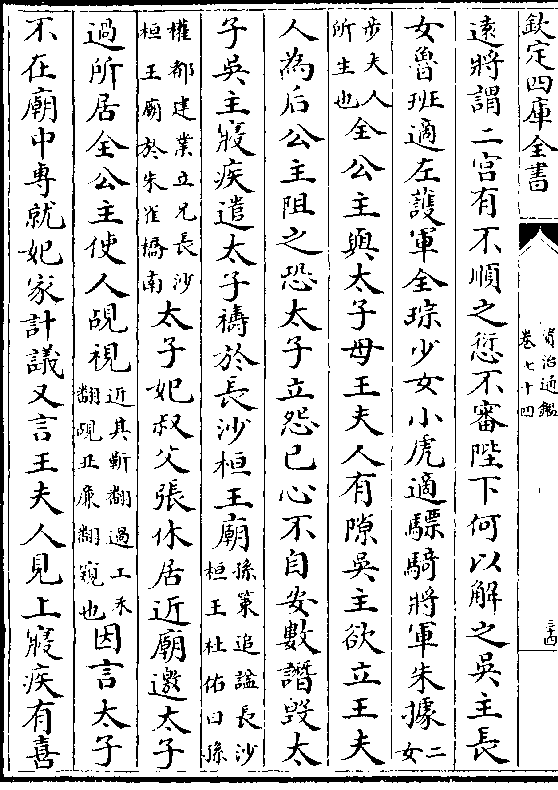 欽定四庫全書
資治通鑑
卷七十四
遠將謂二宮有不順之愆不審陛下何以解之吳主長
女魯班適左護軍全琮少女小虎適驃騎將軍朱據二女
步夫人所生也全公主與太子母王夫人有隙吳主欲立王夫
人為后公主阻之恐太子立怨已心不自安數譖毀太
子吳主寢疾遣太子禱於長沙桓王廟孫策追諡長沙桓王杜佑曰孫
權都建業立兄長沙桓王廟於朱雀橋南太子妃叔父張休居近廟邀太子
過所居全公主使人覘視近其靳翻過工禾翻覘丑廉翻窺也因言太子
不在廟中專就妃家計議又言王夫人見上寢疾有喜